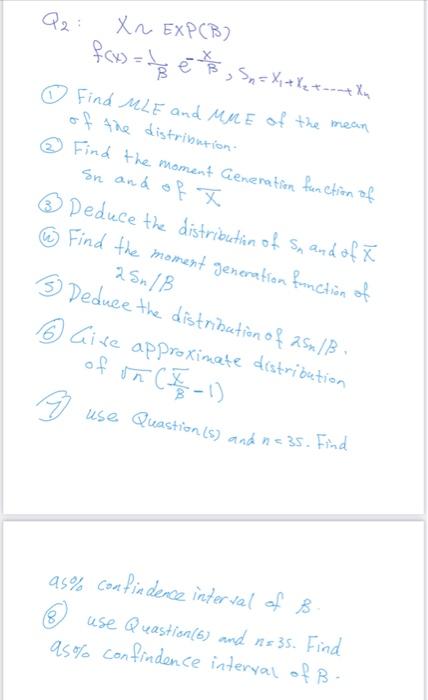 Q2: X~ EXP(B)
f(x) = 1/B e^-x/B, Sn = X1+X2+----+Xn
① Find MLE and MME of the mean
of the distribution.
② Find the moment Generation function of
Sn and of X̅
③ Deduce the distribution of Sn and of X̅
④ Find the moment generation function of
2Sn/B
5) Deduce the distribution of 2Sn/B.
⑥ Give approximate distribution
of √n (X̅/B -1)
⑦ use Quastion(5) and n = 35. Find
95% confindence interval of B.
⑧ use Quastion(6) and n=35. Find
95% confindence interval of B.